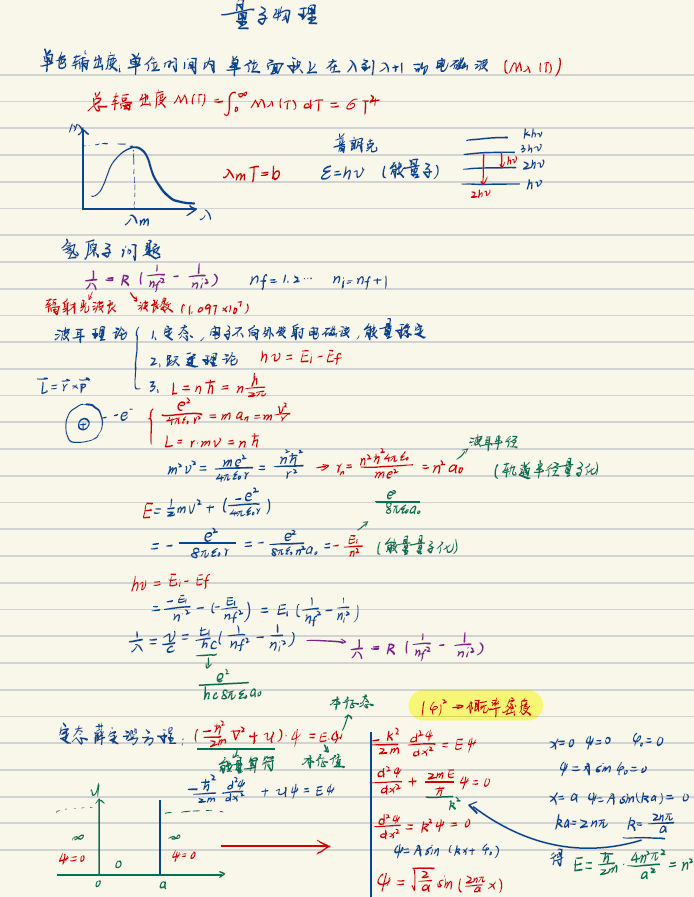 量子物理
单色辐出度: 单位时间内 单位面积上 在λ到λ+1 的电磁波 (Mλ(T))
总辐出度 M(T) = ∫₀^∞ Mλ(T) dT = σT⁴
M
λm λ
λmT = b
普朗克
ε = hν (能量子)
khν
3hν
2hν
hν
hν
2hν
氢原子问题
1/λ = R (1/nf² - 1/ni²) nf = 1.2··· ni = nf+1
辐射光波长 波长数 (1.097×10⁷)
玻耳理论 1. 定态, 电子不向外发射电磁波, 能量稳定
2. 跃迁理论 hν = Ei - Ef
3. L = nħ = n h/2π
L⃗ = r⃗ × p⃗
⊕ -e⁻
e²/4πε₀r² = m an = m v²/r
L = r·mv = nħ
m²v² = me²/4πε₀r = n²ħ²/r² → rn = n²ħ²4πε₀/me² = n²a₀ 玻耳半径 (轨道半径量子化)
E = ½mv² + (-e²/4πε₀r)
= - e²/8πε₀r = - e²/8πε₀n²a₀ = - E₁/n² (能量量子化)
e/8πε₀a₀
hν = Ei - Ef
= -E₁/ni² - (-E₁/nf²) = E₁ (1/nf² - 1/ni²)
1/λ = ν/c = E₁/hc (1/nf² - 1/ni²) → 1/λ = R (1/nf² - 1/ni²)
e²/hc8πε₀a₀
定态薛定谔方程: (-ħ²/2m ∇² + U)·ψ = Eψ
本征态
能量算符 本征值
-ħ²/2m d²ψ/dx² + Uψ = Eψ
U
∞ ∞
ψ=0 0 ψ=0
0 a
|φ|² → 概率密度
-ħ²/2m d²ψ/dx² = Eψ
d²ψ/dx² + 2mE/ħ ψ = 0
k²
d²ψ/dx² = k²ψ = 0
ψ = A sin (kx + φ₀)
ψ = √(2/a) sin (2nπ/a x)
x=0 ψ=0 φ₀=0
ψ = A sin φ₀ = 0
x=a ψ=A sin(ka) = 0
ka = 2nπ k = 2nπ/a
得 E = ħ/2m · 4n²π²/a² = n²